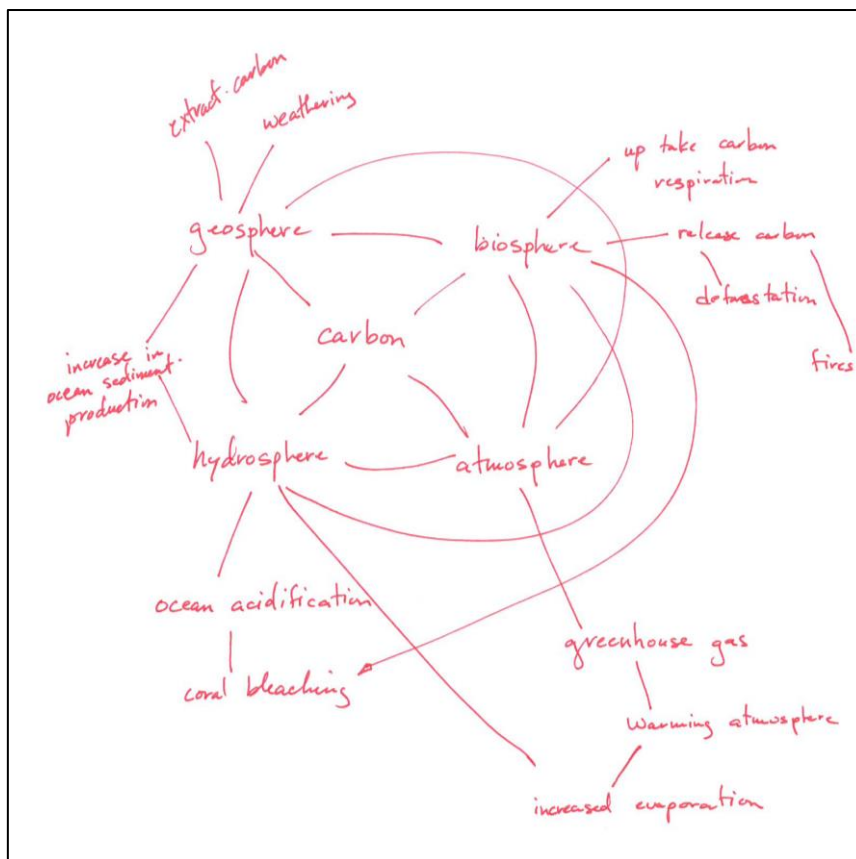 extract carbon
weathering
up take carbon
respiration
geosphere
biosphere
release carbon
deforestation
carbon
fires
increase in
ocean sediment.
production
hydrosphere
atmosphere
ocean acidification
greenhouse gas
coral bleaching
warming atmosphere
increased evaporation